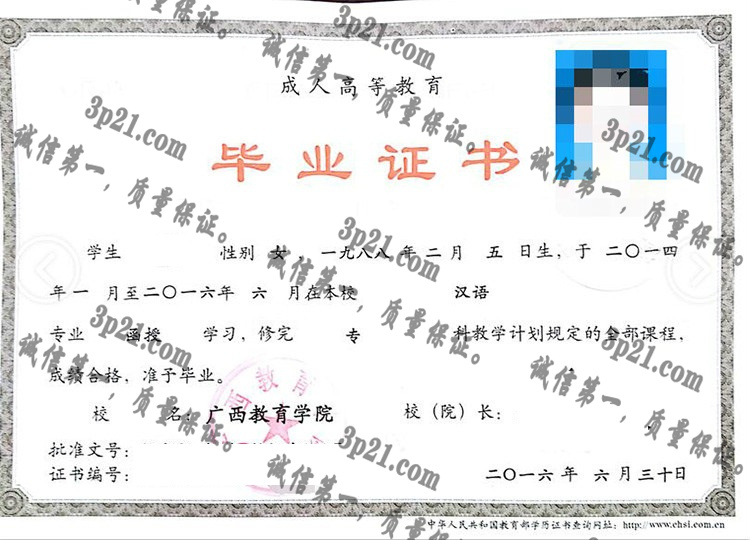 成人高等教育
毕业证书
学生 性别 女 ，一九八八 年 二 月 五 日生，于 二〇一四
年 一 月至二〇一六年 六 月在本校 汉语
专业 函授 学习，修完 专 科教学计划规定的全部课程，
成绩合格，准予毕业。
校 名：广西教育学院 校（院）长：
批准文号：
证书编号：
二〇一六 年 六 月 三十日
中华人民共和国教育部学历证书查询网址：http://www.chsi.com.cn
3p21.com
诚信第一，质量保证。
3p21.com
诚信第一，质量保证。
3p21.com
诚信第一，质量保证。
3p21.com
诚信第一，质量保证。
3p21.com
诚信第一，质量保证。
3p21.com
诚信第一，质量保证。
3p21.com
诚信第一，质量保证。